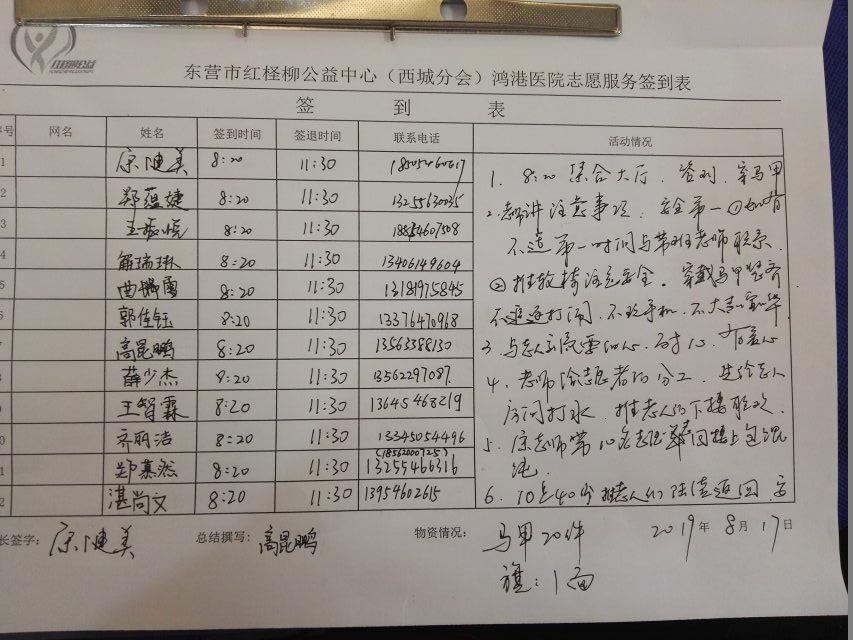 东营市红柽柳公益中心（西城分会）鸿港医院志愿服务签到表
签 到 表
序号 网名 姓名 签到时间 签退时间 联系电话 活动情况
1 8:20 11:30
2 郑蕴婕 8:20 11:30 13255630035
3 王振悦 8:20 11:30 18854607508
4 解瑞琳 8:20 11:30 13406149604
8:20 11:30 13181975845
6 郭佳钰 8:20 11:30 13376470968
高昆鹏 8:20 11:30 13563388130
薛少杰 8:20 11:30 13562297087
王智霖 8:20 11:30 13645468219
0 齐丽洁 8:20 11:30 13345054496
(18562000725)
1 郑慕然 8:20 11:30 13255466316
2 湛尚文 8:20 11:30 13954602615
1. 8:20 集合大厅、签到、穿马甲
2. 老师讲注意事项、安全第一 ①如有
不适第一时间与带班老师联系
② 推轮椅注意安全。穿戴马甲整齐
不追逐打闹、不玩手机、不大声喧哗
3. 与老人交流要细心、耐心、有爱心
4. 老师给志愿者们分工、进给老人
房间打水、推老人们下楼联欢
5. 老师带10名志愿者 楼上包馄
饨.
6. 10点40分推老人们陆续返回、
长签字： 总结撰写：高昆鹏 物资情况：马甲20件 2019年 8月 17日
旗：1面